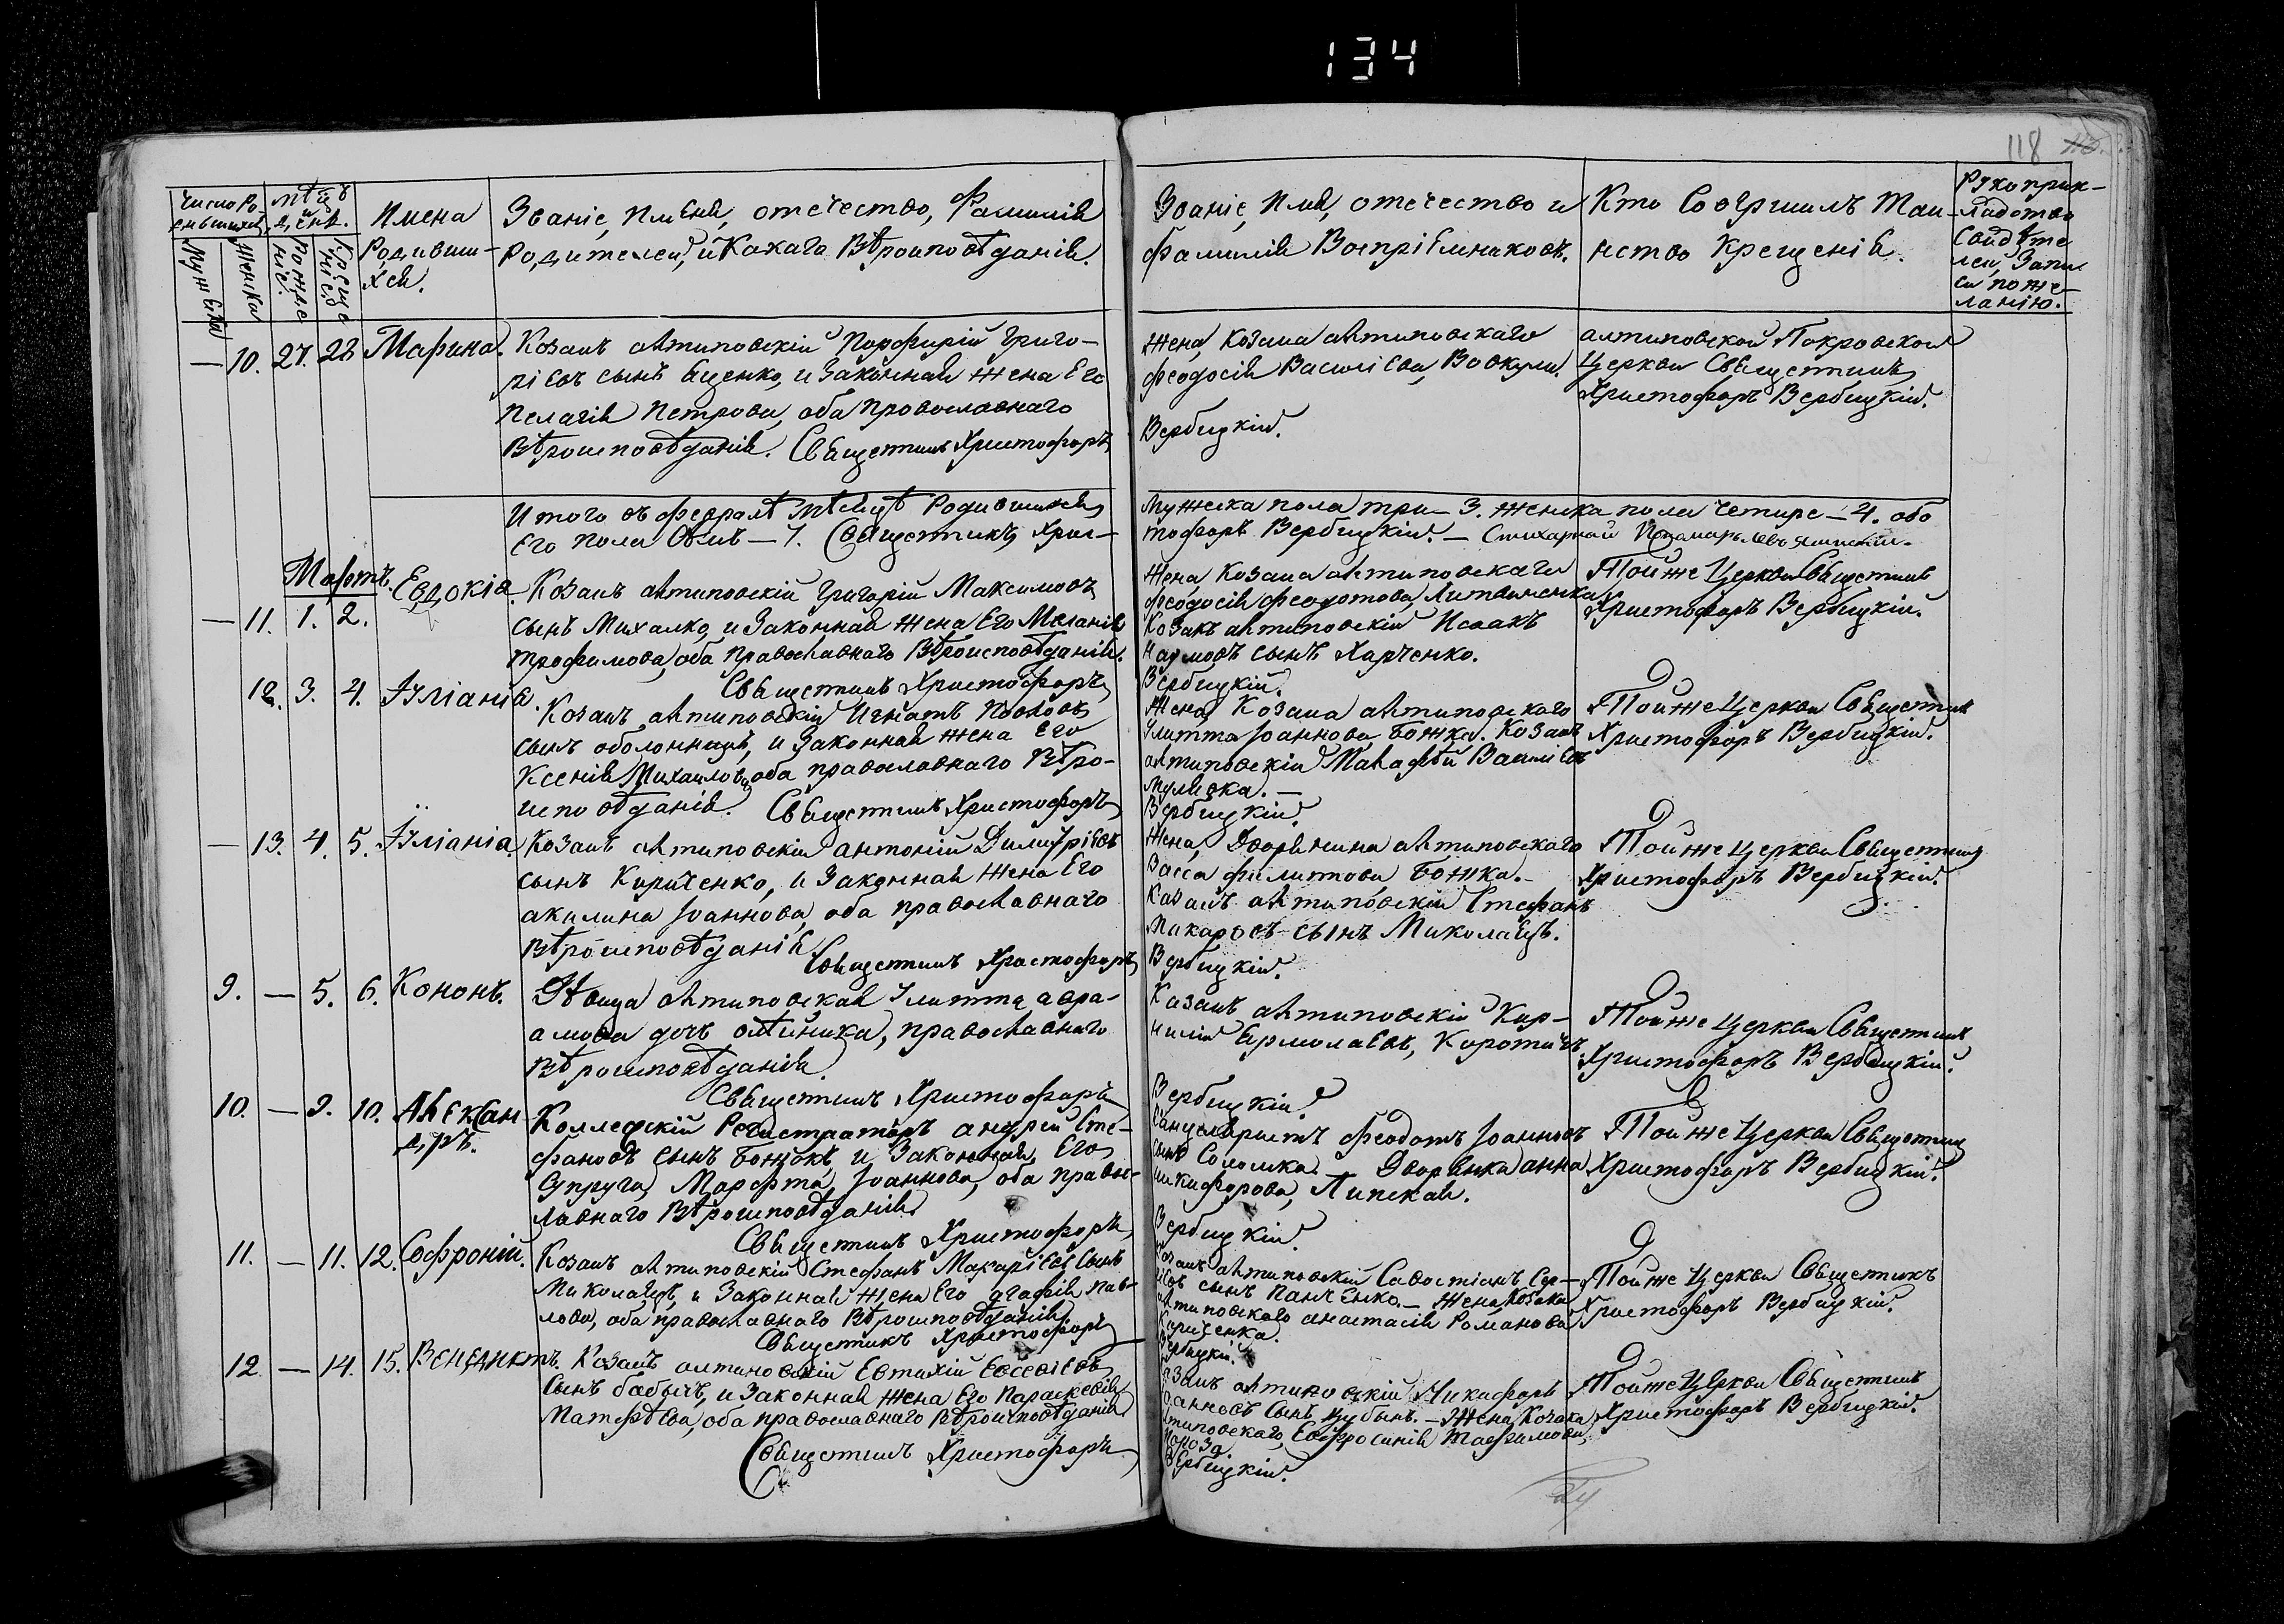 134
118
Число Ро-
Мѣсяцъ и день.
Имена Родивши-
хся.
Званіе, Имена, отечество, Фамилія
Родителей, и Какага Вѣроисповѣданія.
Званіе, Имя, отечество и
фамилія Воспріемниковъ.
Кто Совершилъ Таи-
нство Крещенія.
Рукоприк-
ладство
Свидѣте
лей, Запи
си по же-
ланію.
Мужеска
Женска
Рожде
ніе.
Креще
ніе.
— 10. 27. 28 Марина.
Козакъ антиповскій Порфирій Григо-
ріевъ сынъ Яценко, и Законная жена Его
Пелагія Петрова, оба Православнаго
Вѣроисповѣданія. Священникъ Христофоръ
Жена, Козака антиповскаго
Феодосія Василіева, Вовкула.
Вербицкій.
антиповской Покровской
Церкви Священникъ
Христофоръ Вербицкій.
Итого въ февралѣ мѣсяцѣ Родившихся
Его пола Семь — 7. Священникъ Хрис-
Мужеска пола три — 3. женска пола четире — 4. обо
тофоръ Вербицкій. — Стихарной Пономарь
Мартъ.
— 11. 1. 2. Евдокія.
Козакъ антиповскій Григорій Максимовъ
сынъ Михалко, и Законная жена Его Меланія
Трофимова, оба Православнаго Вѣроисповѣданія.
Священникъ Христофоръ
Жена Козака антиповскаго
Феодосія Феодотова, Литвиненка
Козакъ антиповскій Исаакъ
Наумовъ сынъ Харченко.
Вербицкій.
Тойже Церкви Священникъ
Христофоръ Вербицкій.
12. 3. 4. Іуліанія.
Козакъ антиповскій Игнатъ
сынъ оболонникъ, и Законная жена Его
Ксенія Михайлова, оба православнаго Вѣро-
исповѣданія. Священникъ Христофоръ
Жена, Козака антиповскаго
Улитта Іоаннова, Божка. Козакъ
антиповскій Василіевъ
Вербицкій.
Тойже Церкви Священник
Христофоръ Вербицкій.
— 13. 4. 5. Іуліанія.
Козакъ антиповскій антоній Димитріевъ
сынъ Кириченко, и Законная жена Его
акилина Іоаннова, оба православнаго
Вѣроисповѣданія.
Священникъ Христофоръ
Жена, Дворянина антиповскаго
Васса Филиппова Божка. —
Козакъ антиповскій Стефанъ
Макаровъ сынъ Миколаецъ.
Вербицкій.
Тойже Церкви Священник
Христофоръ Вербицкій.
9. — 5. 6. Кононъ.
Дѣвица антиповская Улитта авра-
амова дочь олѣйника, православнаго
Вѣроисповѣданія.
Священникъ Христофоръ
Козакъ антиповскій Кор-
нилій Ермолаевъ, Коротичъ.
Вербицкій.
Тойже Церкви Священник
Христофоръ Вербицкій.
10. — 9. 10. Алексан-
дръ.
Коллежскій Регистраторъ андрей Сте-
фановъ сынъ Божокъ и Законная Его
Супруга, Марфта Іоаннова, оба правос-
лавнаго Вѣроисповѣданія.
Священникъ Христофоръ
Канцеляристъ Феодотъ Іоанновъ
сынъ Соломка. — Дворянка анна
никифорова, Липская.
Вербицкій.
Тойже Церкви Священник
Христофоръ Вербицкій.
11. — 11. 12. Софроній.
Козакъ антиповскій Стефанъ Макаріевъ сынъ
Миколаецъ, и Законная жена Его агафія Пав-
лова, оба православнаго Вѣроисповѣданія.
Священникъ Христофоръ
Козакъ антиповскій Савостіанъ Сер-
сынъ Панченко. — Жена, Козака
антиповскаго анастасія Романова
Кириченка.
Вербицкій.
Тойже Церкви Священникъ
Христофоръ Вербицкій.
12 — 14. 15. Венедиктъ.
Козакъ антиповскій Евтихій Евсевіевъ
Сынъ бабычъ, и Законная жена Его Параскевія
Матфѣева, оба православнаго Вѣроисповѣданія
Священникъ Христофоръ
Козакъ антиповскій Никифоръ
Іоанновъ Сынъ Цыбынъ. — Жена, Козака
антиповскаго, Евфросинія
Мороза
Вербицкій.
Тойже Церкви Священникъ
Христофоръ Вербицкій.